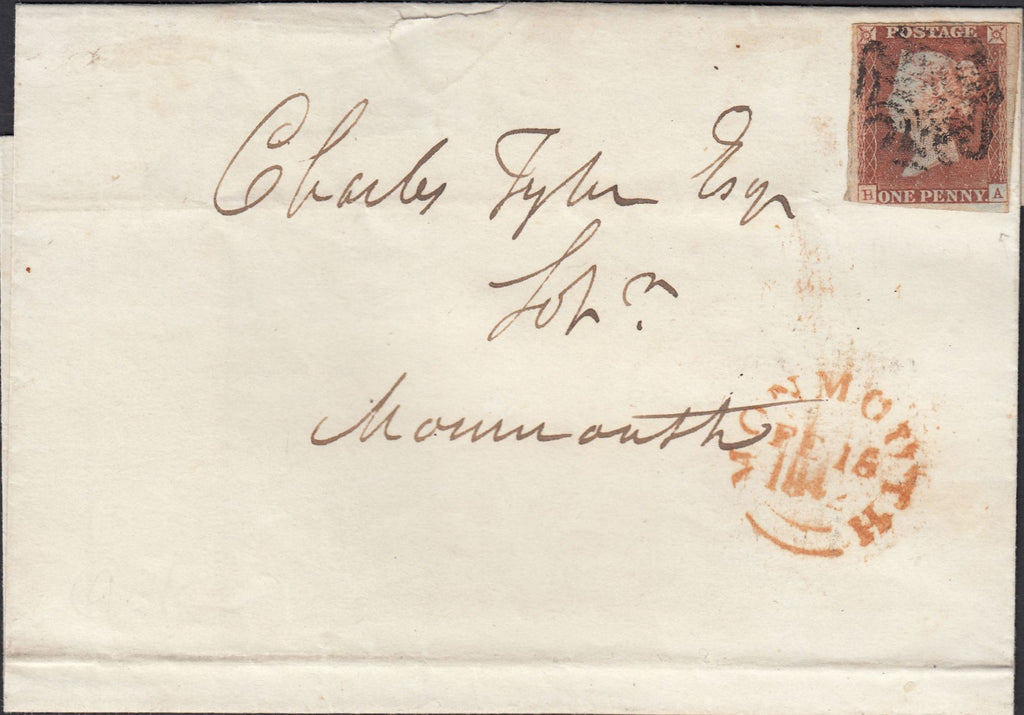 POSTAGE
H ONE PENNY. A
Charles Tyler Esqr
Monmouth
MONMOUTH
FE 16
184